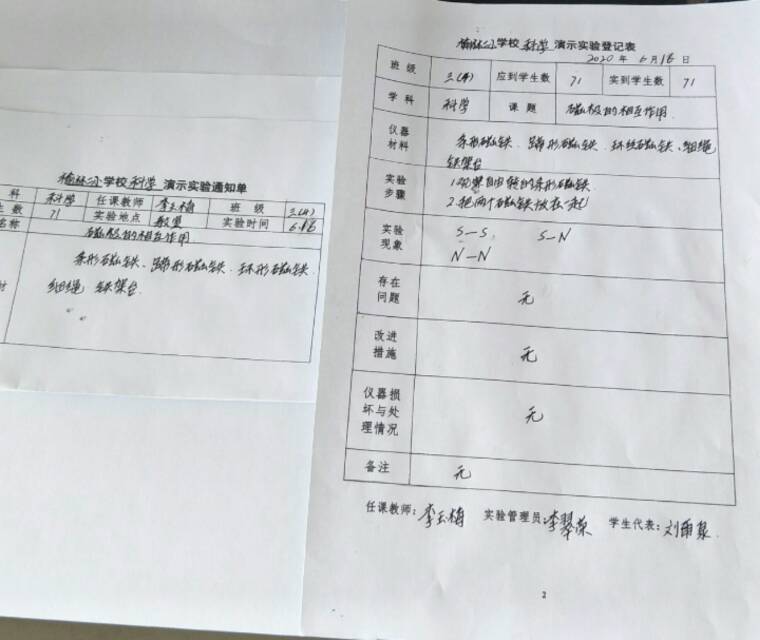 学校 科学 演示实验通知单
科 科学 任课教师 李玉梅 班 级 三(4)
生数 71 实验地点 教室 实验时间 6.16
名称 磁极的相互作用
条形磁铁、蹄形磁铁、环形磁铁
细绳 铁架台
材
学校 科学 演示实验登记表
2020 年 6 月 16 日
班 级 三(4) 应到学生数 71 实到学生数 71
学 科 科学 课 题 磁极的相互作用
仪器
材料
条形磁铁、蹄形磁铁、环形磁铁、细绳
铁架台
实验
步骤
1. 自 的条形磁铁
2.把两个磁铁放在一起
实验
现象
S—S S—N
N—N
存在
问题
无
改进
措施
无
仪器损
坏与处
理情况
无
备注 无
任课教师：李玉梅 实验管理员：李翠 学生代表：刘雨
2